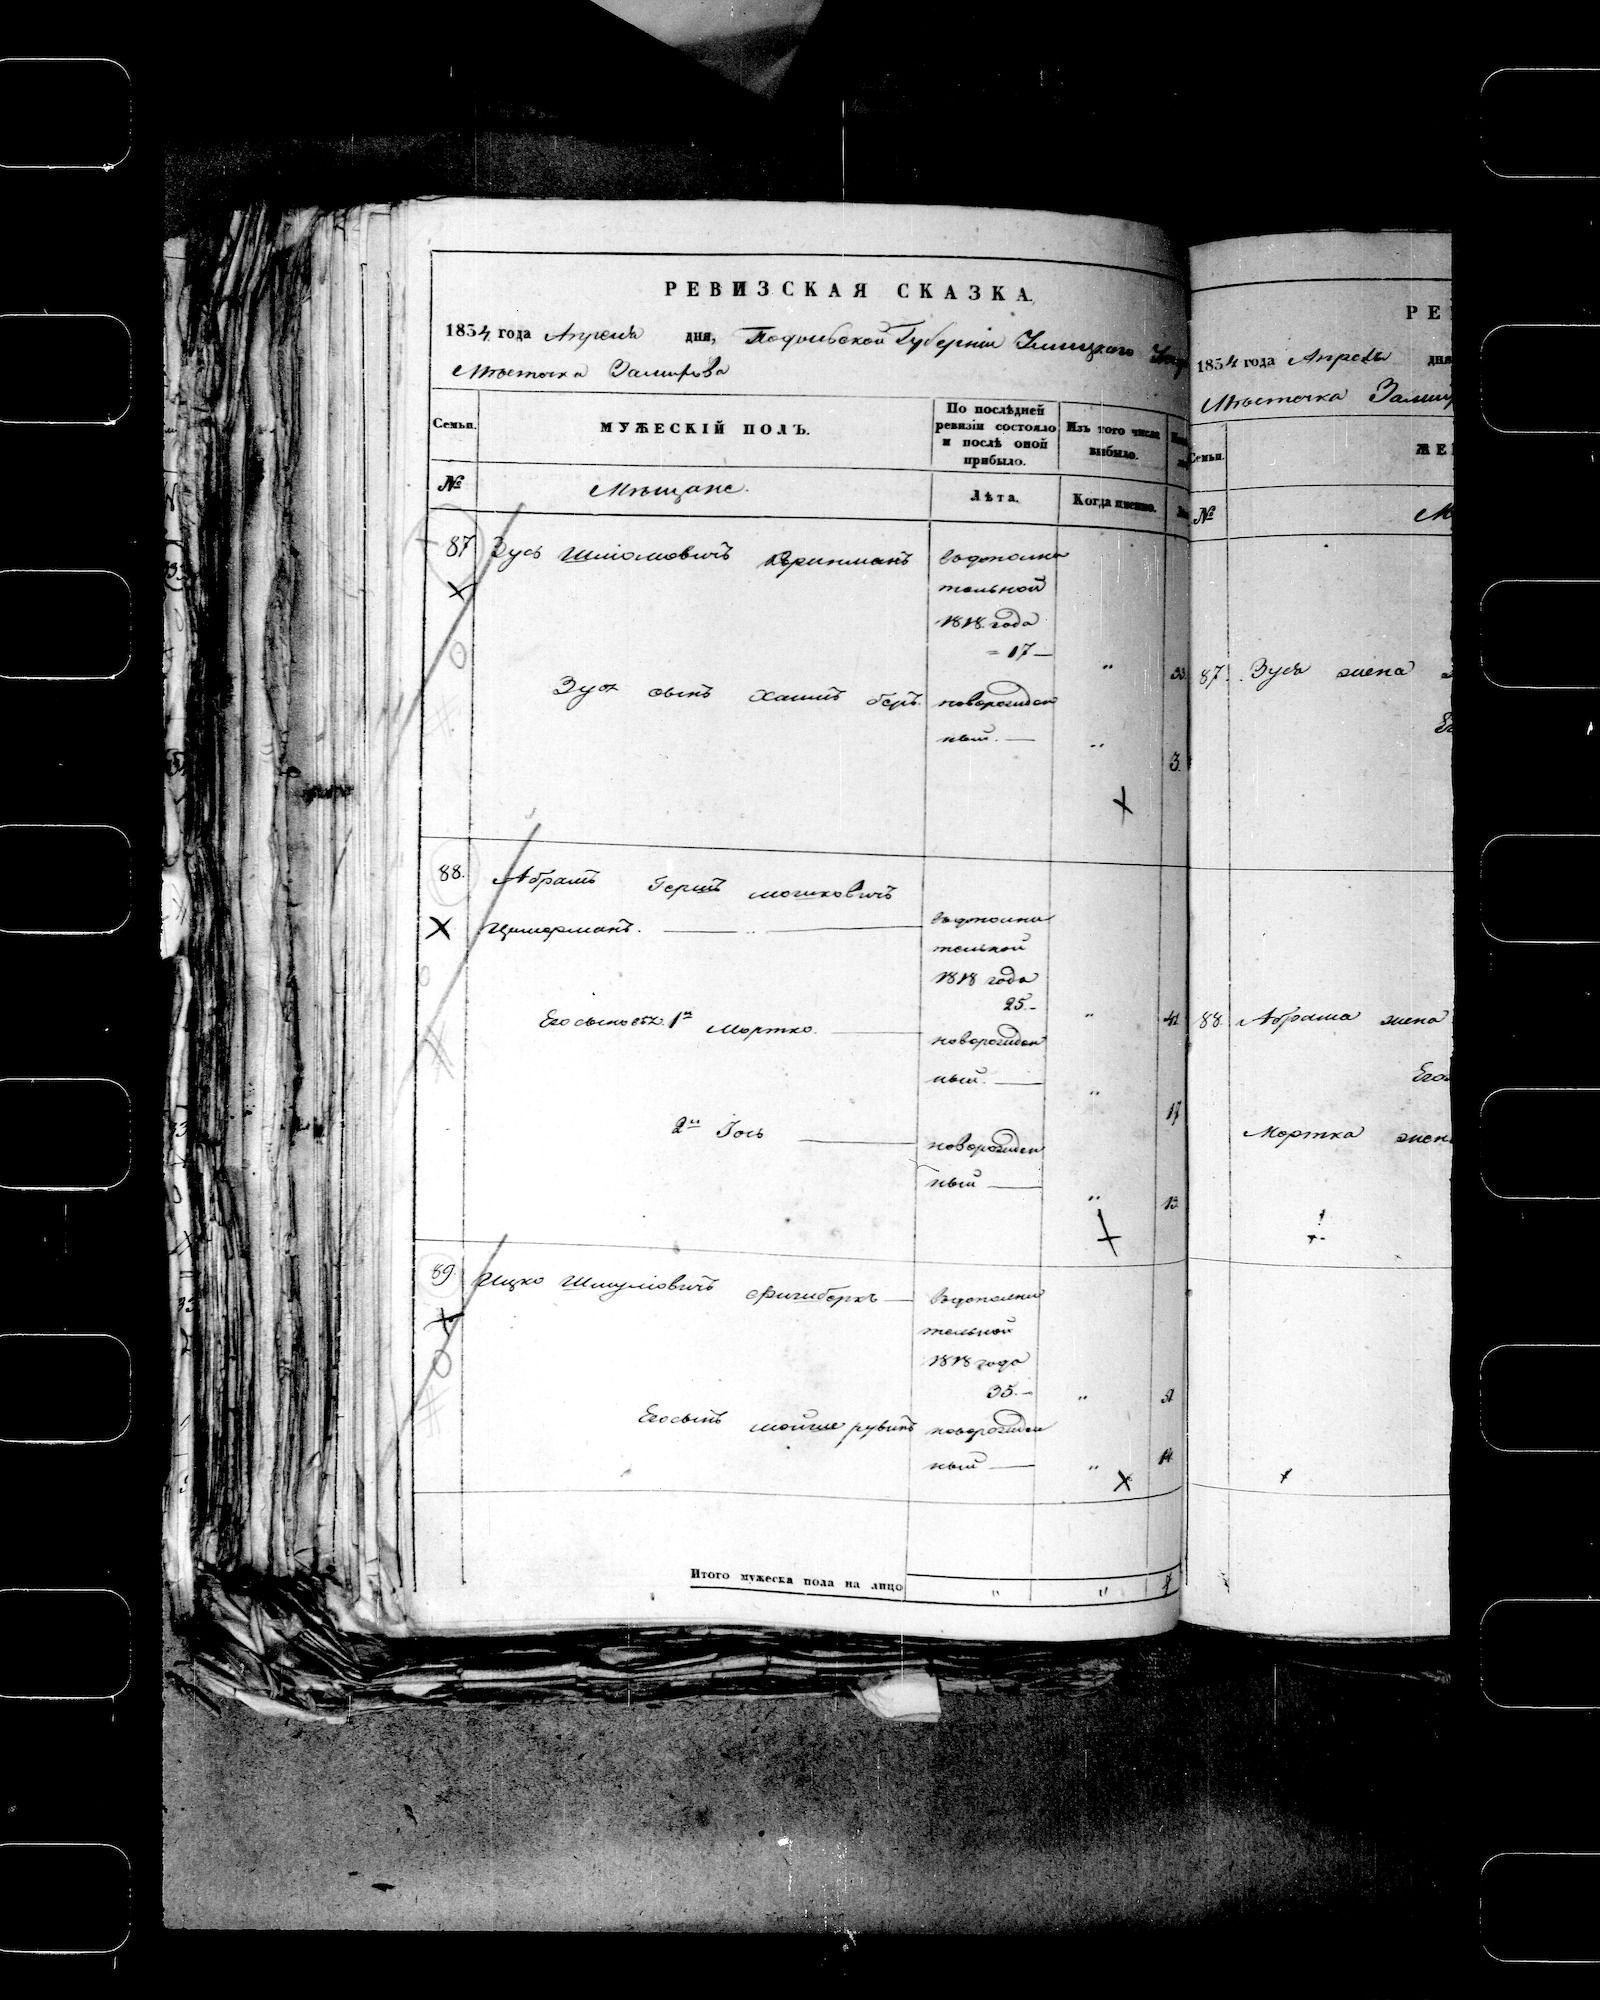 РЕВИЗСКАЯ СКАЗКА.
1834 года Апреля дня, Подольской Губернии
Мѣстечка
Семьи.
МУЖЕСКІЙ ПОЛЪ.
По послѣдней ревизіи состояло и послѣ оной прибыло.
Изъ того числа выбыло.
№
Мѣщане.
Лѣта.
Когда именно.
87 Зусь Шліомовичъ
тельной
1818 года
17
33
сынъ Хаимъ беръ новорожден
ный.
3.
88. Абрамъ Гершъ мошковичъ
Цимерманъ.
тельной
1818 года
25.
41
1й Мортко. новорожден
ный.
17
2й Іось новорожден
ный
13
89. Ицко Шмуліовичъ
тельной
1818 года
35.
51
Его сынъ мойше рувинъ новорожден
ный
14
Итого мужеска пола на лицо
7
РЕ
1834 года Апреля дня
Мѣстечка
Семьи.
ЖЕ
№
М
87. Зуся жена
88. Абрама жена
Его
Мортка жен